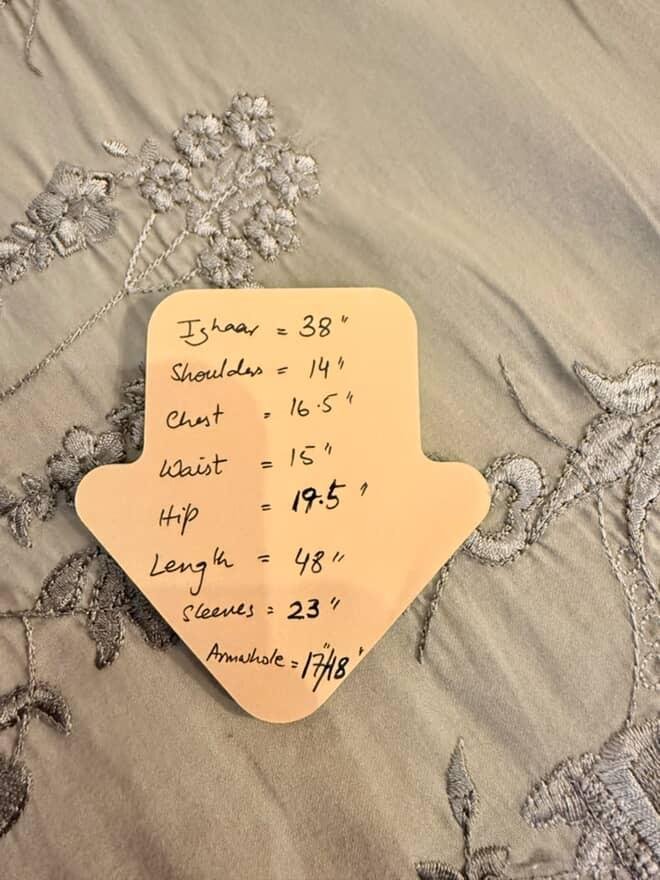 Izhaar = 38"
Shoulders = 14"
Chest = 16.5"
Waist = 15"
Hip = 19.5"
Length = 48"
Sleeves = 23"
Armwhole = 17"/18"